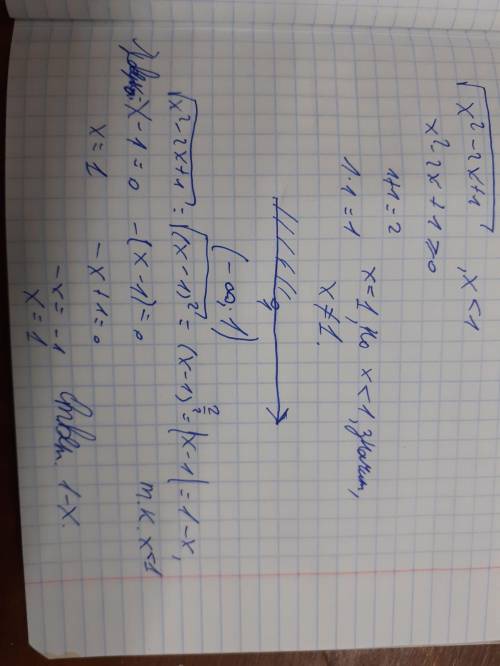 √x²-2x+1, x<1
x²-2x+1≥0
1+1=2
1·1=1
x=1, но x<1, значит,
x≠1.
1
(-∞; 1)
√x²-2x+1 = √(x-1)² = (x-1)^(2/2) = |x-1| = 1-x,
т.к. x<1
x-1=0 -(x-1)=0
x=1 -x+1=0
-x=-1
x=1
Ответ. 1-x.